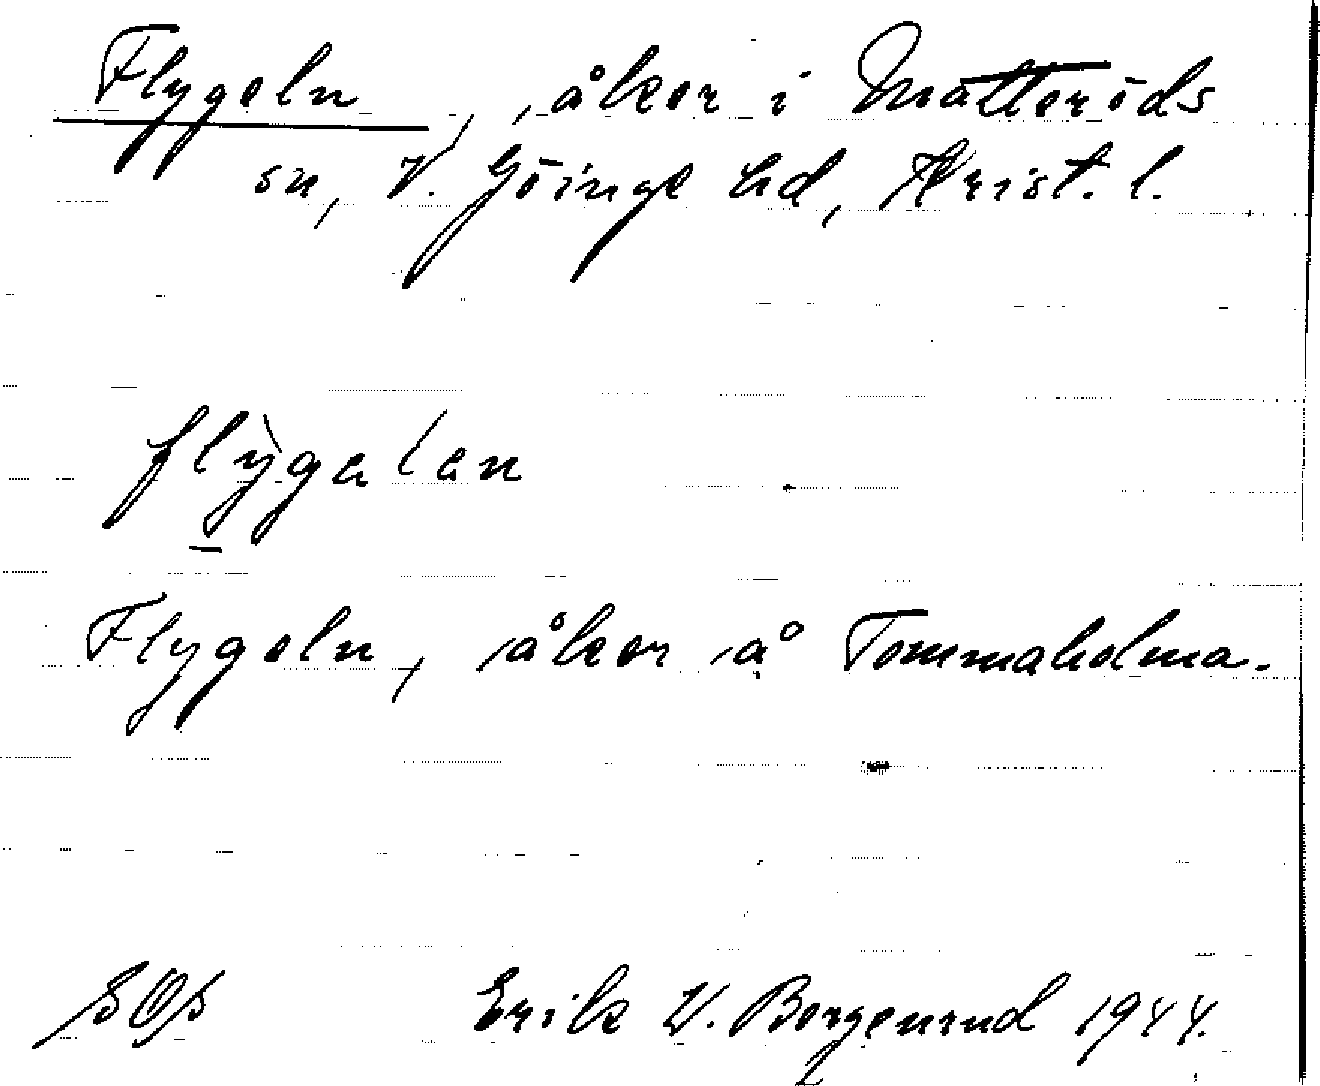 Flygeln, åker i Matteröds
sn, V. Göinge hd, Krist. l.
flỳgalen
Flygeln, åker å Tommaholma.
Erik W. Borgenrud 1944.